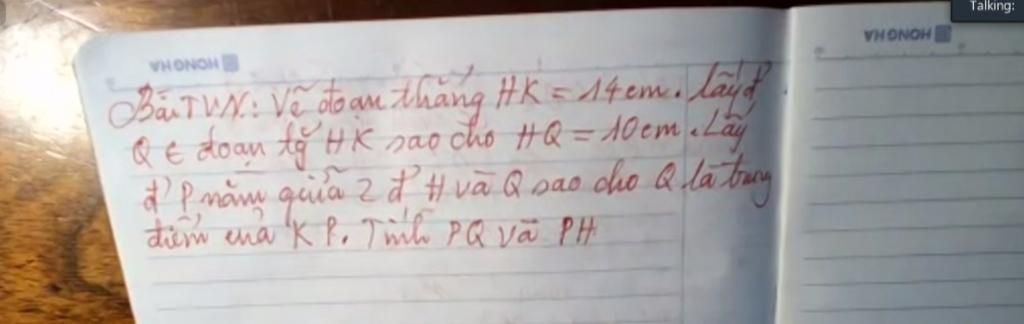 Talking:
HONG HA
HONG HA
Bài TVN: Vẽ đoạn thẳng HK = 14cm. lấy đ'
Q ∈ đoạn tg HK sao cho HQ = 10cm. Lấy
đ' P nằm giữa 2 đ' H và Q sao cho Q là trung
điểm của KP. Tính PQ và PH